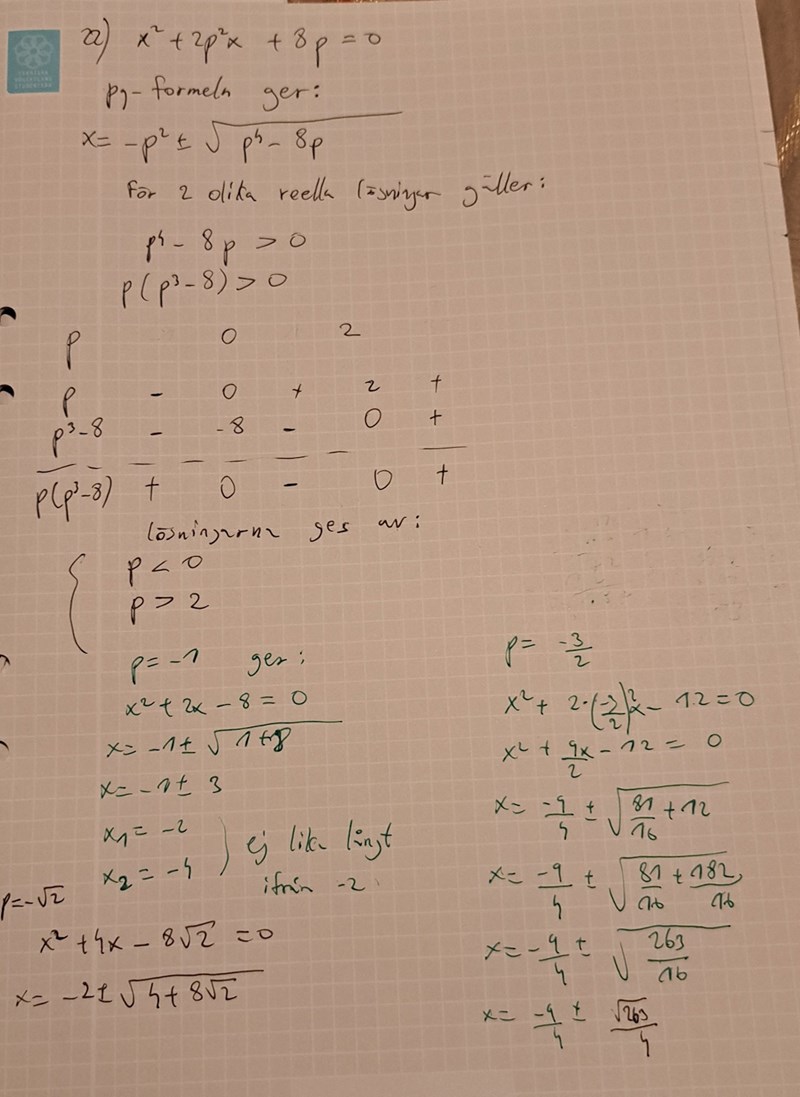 22) x² + 2p²x + 8p = 0
pq-formeln ger:
x = -p² ± √(p⁴ - 8p)
För 2 olika reella lösningar gäller:
p⁴ - 8p > 0
p(p³ - 8) > 0
p 0 2
p - 0 + 2 +
p³-8 - -8 - 0 +
p(p³-8) + 0 - 0 +
lösningarna ges av:
{ p < 0
p > 2
p = -1 ger:
x² + 2x - 8 = 0
x = -1 ± √(1+8)
x = -1 ± 3
x₁ = -2
x₂ = -4
} ej lika långt
ifrån -2
p = -√2
x² + 4x - 8√2 = 0
x = -2 ± √(4 + 8√2)
p = -3/2
x² + 2·(-3/2)²x - 12 = 0
x² + 9x/2 - 12 = 0
x = -9/4 ± √(81/16 + 12)
x = -9/4 ± √(81/16 + 182/16)
x = -9/4 ± √(263/16)
x = -9/4 ± √263/4